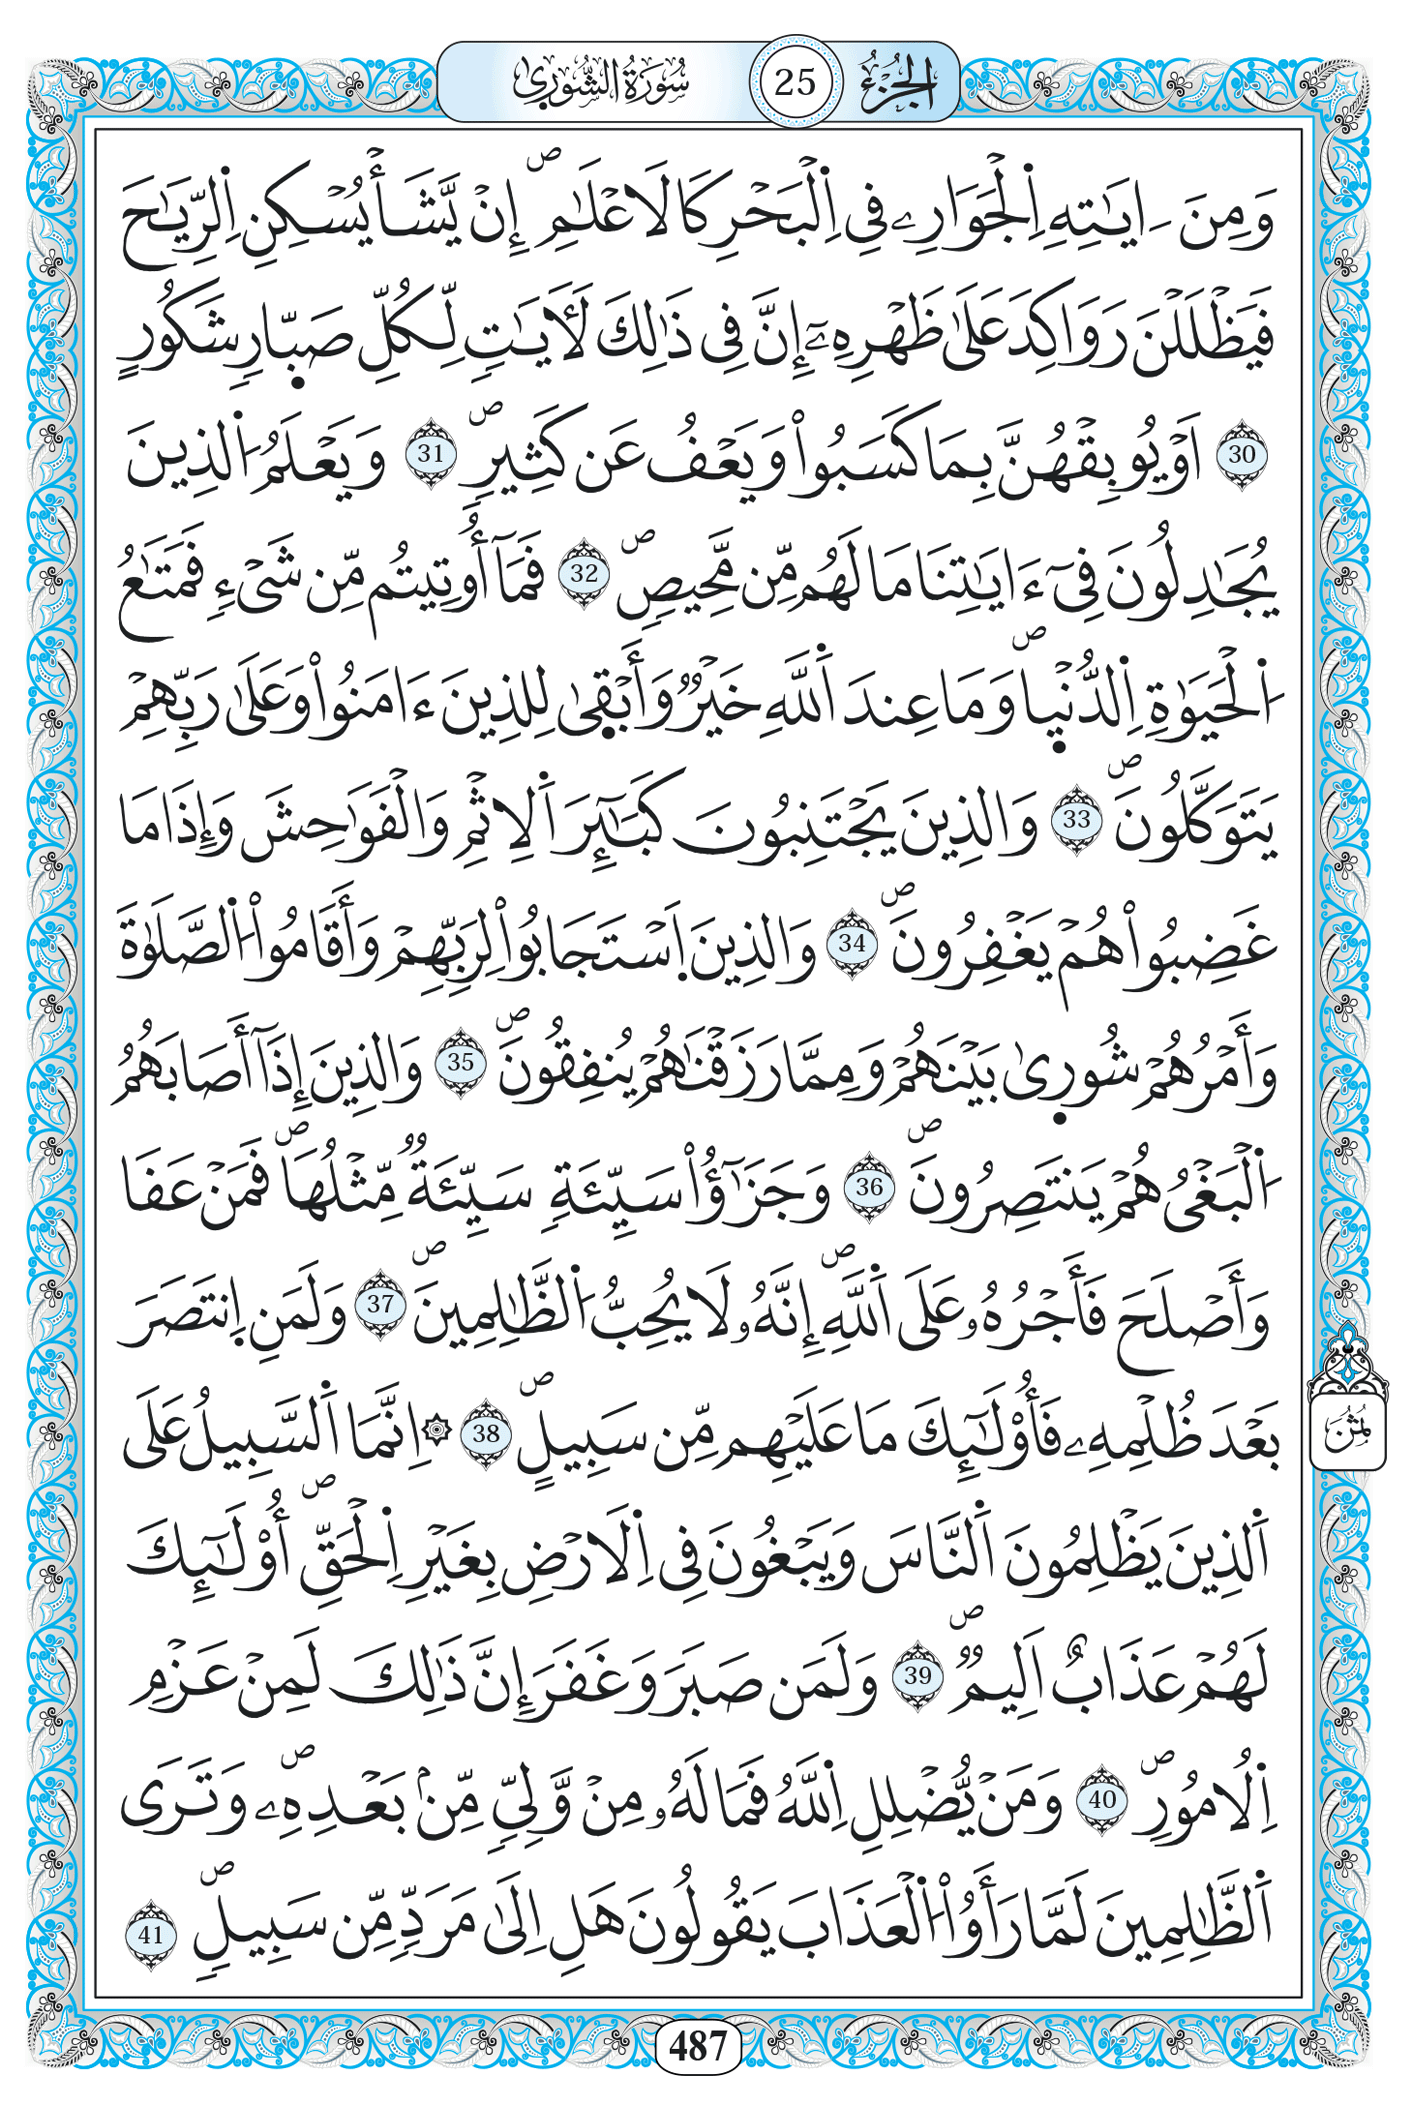 الجزء 25 سورة الشورى
وَمِنَ ـايَٰتِهِ اِ۬لْجَوَارِۦ فِي اِ۬لْبَحْرِ كَالَاعْلَٰمِۖ إِنْ يَّشَأْ يُسْكِنِ اِ۬لرِّيَٰحَ
فَيَظْلَلْنَ رَوَاكِدَ عَلَىٰ ظَهْرِهِۦٓ إِنَّ فِي ذَٰلِكَ لَأٓيَٰتٖ لِّكُلِّ صَبّ۪ارٖ شَكُورٍ
30 اَوْ يُوبِقْهُنَّ بِمَا كَسَبُواْ وَيَعْفُ عَن كَثِيرٖۖ 31 وَيَعْلَمُ اَ۬لذِينَ
يُجَٰدِلُونَ فِيٓ ءَايَٰتِنَا مَا لَهُم مِّن مَّحِيصٖۖ 32 فَمَآ أُوتِيتُم مِّن شَيْءٖ فَمَتَٰعُ
اُ۬لْحَيَوٰةِ اِ۬لدُّنْي۪اۖ وَمَا عِندَ اَ۬للَّهِ خَيْرٞ وَأَبْق۪ىٰ لِلذِينَ ءَامَنُواْ وَعَلَىٰ رَبِّهِمْ
يَتَوَكَّلُونَۖ 33 وَالذِينَ يَجْتَنِبُونَ كَبَٰٓئِرَ اَ۬لِاثْمِ وَالْفَوَٰحِشَ وَإِذَا مَا
غَضِبُواْ هُمْ يَغْفِرُونَۖ 34 وَالذِينَ اَ۪سْتَجَابُواْ لِرَبِّهِمْ وَأَقَامُواْ اُ۬لصَّلَوٰةَ
وَأَمْرُهُمْ شُور۪ىٰ بَيْنَهُمْ وَمِمَّا رَزَقْنَٰهُمْ يُنفِقُونَۖ 35 وَالذِينَ إِذَآ أَصَابَهُمُ
اُ۬لْبَغْيُ هُمْ يَنتَصِرُونَۖ 36 وَجَزَٰٓؤُاْ سَيِّئَةٖ سَيِّئَةٞ مِّثْلُهَاۖ فَمَنْ عَفَا
وَأَصْلَحَ فَأَجْرُهُۥ عَلَى اَ۬للَّهِۖ إِنَّهُۥ لَا يُحِبُّ اُ۬لظَّٰلِمِينَۖ 37 وَلَمَنِ اِ۪نتَصَرَ
بَعْدَ ظُلْمِهِۦ فَأُوْلَٰٓئِكَ مَا عَلَيْهِم مِّن سَبِيلٍۖ 38 ۞اِنَّمَا اَ۬لسَّبِيلُ عَلَى
اَ۬لذِينَ يَظْلِمُونَ اَ۬لنَّاسَ وَيَبْغُونَ فِي اِ۬لَارْضِ بِغَيْرِ اِ۬لْحَقِّۖ أُوْلَٰٓئِكَ
لَهُمْ عَذَابٌ اَلِيمٞۖ 39 وَلَمَن صَبَرَ وَغَفَرَ إِنَّ ذَٰلِكَ لَمِنْ عَزْمِ
اِ۬لُامُورِۖ 40 وَمَنْ يُّضْلِلِ اِ۬للَّهُ فَمَا لَهُۥ مِنْ وَّلِيّٖ مِّنۢ بَعْدِهِۦۖ وَتَرَى
اَ۬لظَّٰلِمِينَ لَمَّا رَأَوُاْ اُ۬لْعَذَابَ يَقُولُونَ هَلِ اِلَىٰ مَرَدّٖ مِّن سَبِيلٖۖ 41
ثُمُن
487